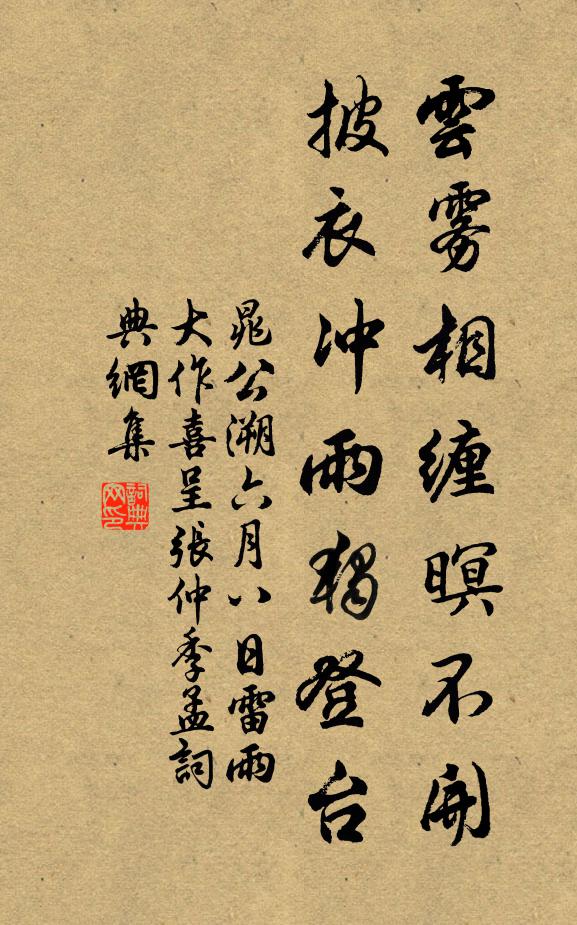 雲雾相缠暝不開
披衣冲雨獨登台
晁公溯六月八日雷雨
大作喜呈張仲季孟詞
典網集
詞典网印